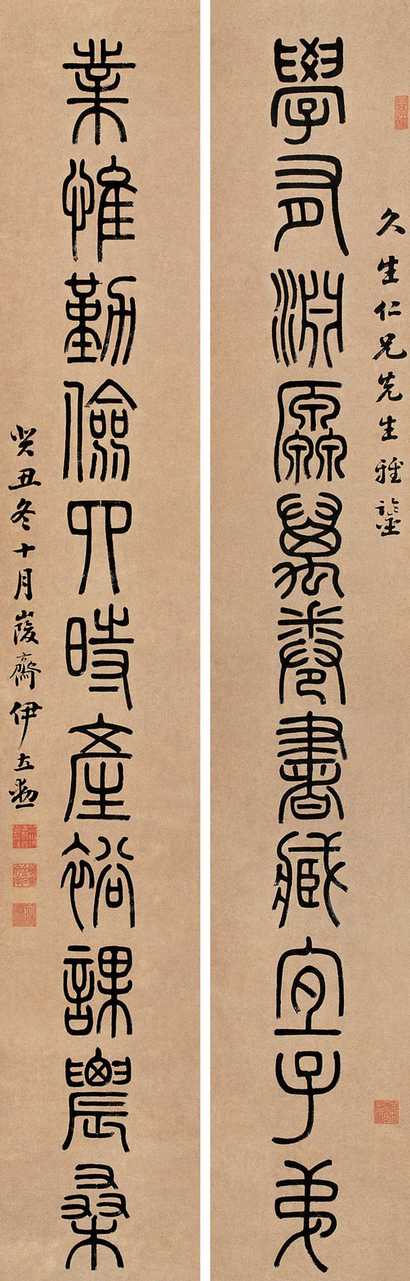 久生仁兄先生雅鑒
學有淵源萬卷書藏宜子弟
業惟勤儉四時產裕課農桑
癸丑冬十月峻齋伊立勳